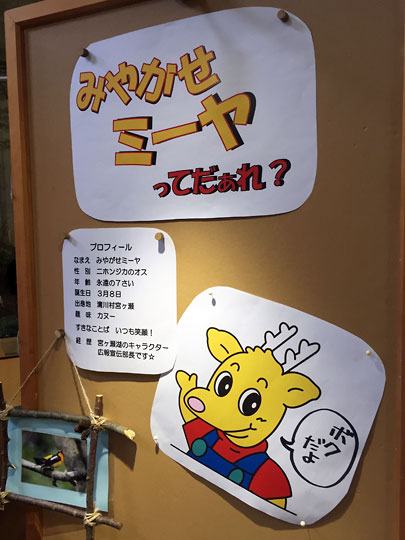 みやがせ
ミーヤ
ってだぁれ？
プロフィール
なまえ みやがせミーヤ
性 別 ニホンジカのオス
年 齢 永遠の7さい
誕生日 3月8日
出身地 清川村宮ヶ瀬
趣 味 カヌー
すきなことば いつも笑顔！
経 歴 宮ヶ瀬湖のキャラクター
広報宣伝部長です☆
ボク
だよ